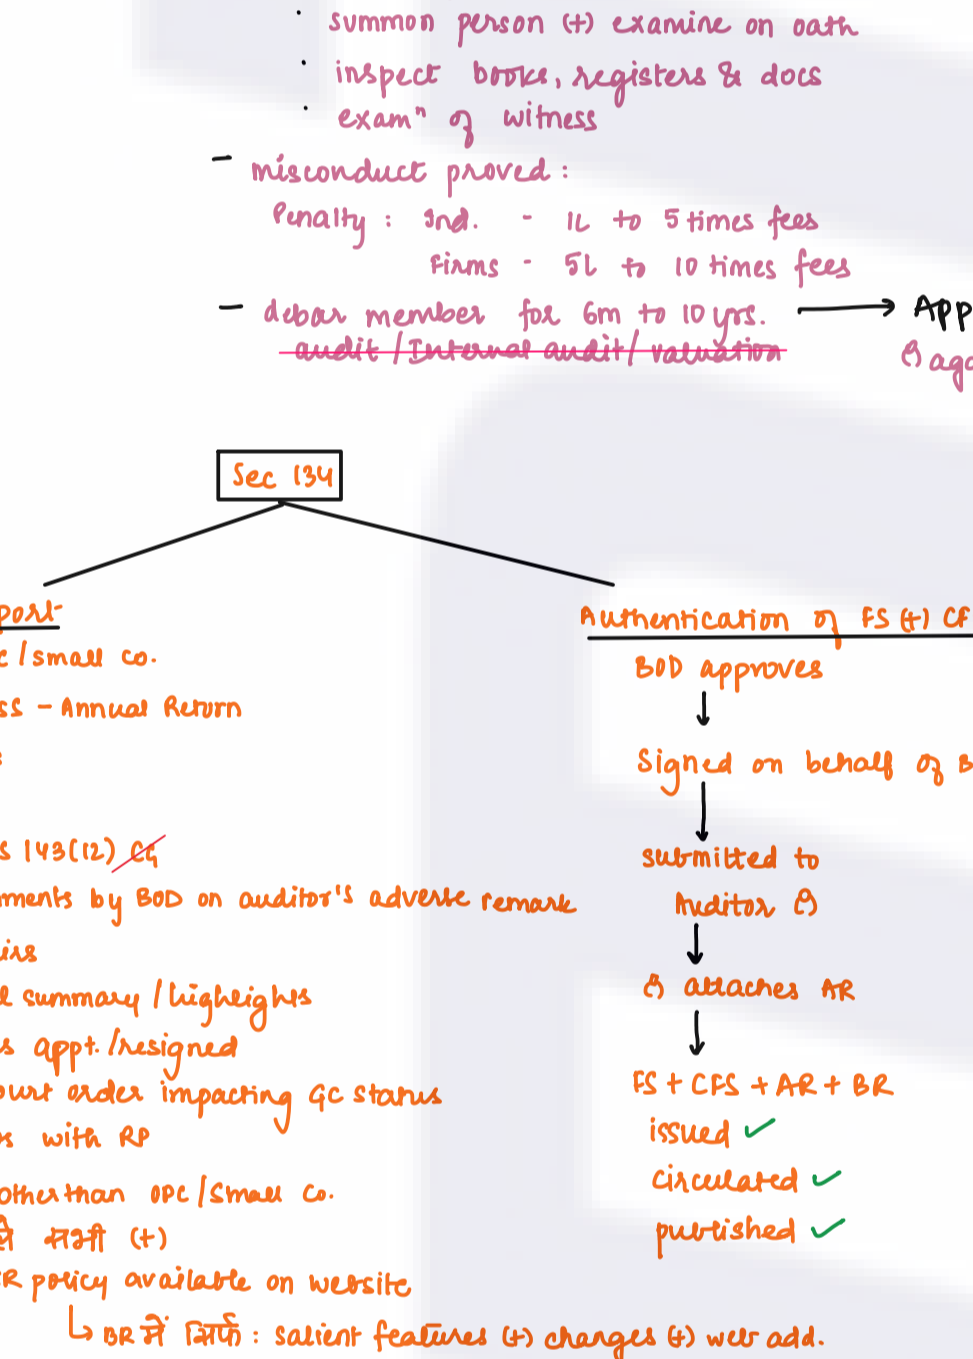 · summon person (+) examine on oath
· inspect books, registers & docs
· examⁿ of witness
- misconduct proved :
Penalty : Ind. - 1L to 5 times fees
Firms - 5L to 10 times fees
- debar member for 6m to 10 yrs. → App
audit / Internal audit / valuation
aga
Sec 134
port
c / small co.
ss - Annual Return
s 143(12) CG
mments by BOD on auditor's adverse remark
irs
l summary / highlights
s appt. / resigned
ourt order impacting GC status
s with RP
other than OPC / Small Co.
सभी (+)
R policy available on website
↳ BR में सिर्फ : Salient features (+) changes (+) web add.
Authentication of FS (+) CF
BOD approves
↓
Signed on behalf of B
↓
submitted to
Auditor
↓
attaches AR
↓
FS + CFS + AR + BR
issued ✓
circulated ✓
published ✓